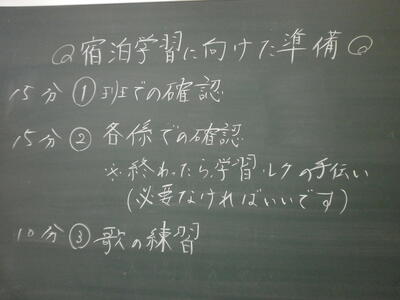 宿泊学習に向けた準備
15分 ① 班での確認
15分 ② 各係での確認
※終わったら学習・レクの手伝い
(必要なければいいです)
10分 ③ 歌の練習